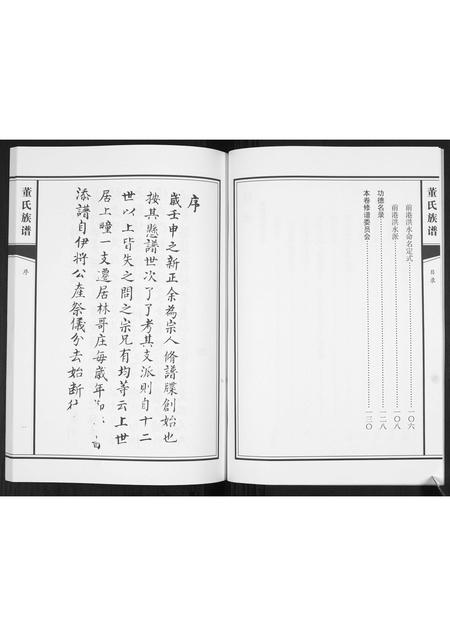 董氏族谱
目录
前港洪水命名定式……一〇六
前港洪水派……一〇八
功德名录……一二八
本卷修谱委员会……一三〇
董氏族谱
序
一
序
歲壬申之新正余為宗人脩譜牒創始也
按其懸譜世次了了考其支派則自十二
世以上皆失之問之宗兄有均等云上世
居上疃一支遷居林哥庄每歲年
添譜自伊將公產祭儀分去始断